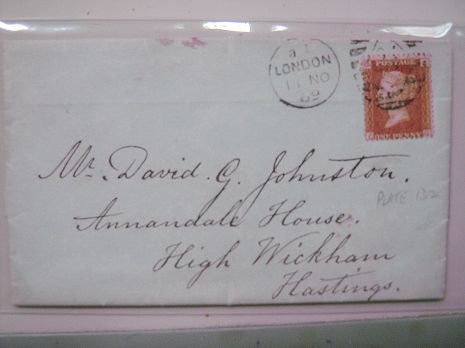 LONDON
11 NO
69
POSTAGE
ONE PENNY
Mr. David. G. Johnston.
PLATE 132
Annandale House.
High Wickham
Hastings.